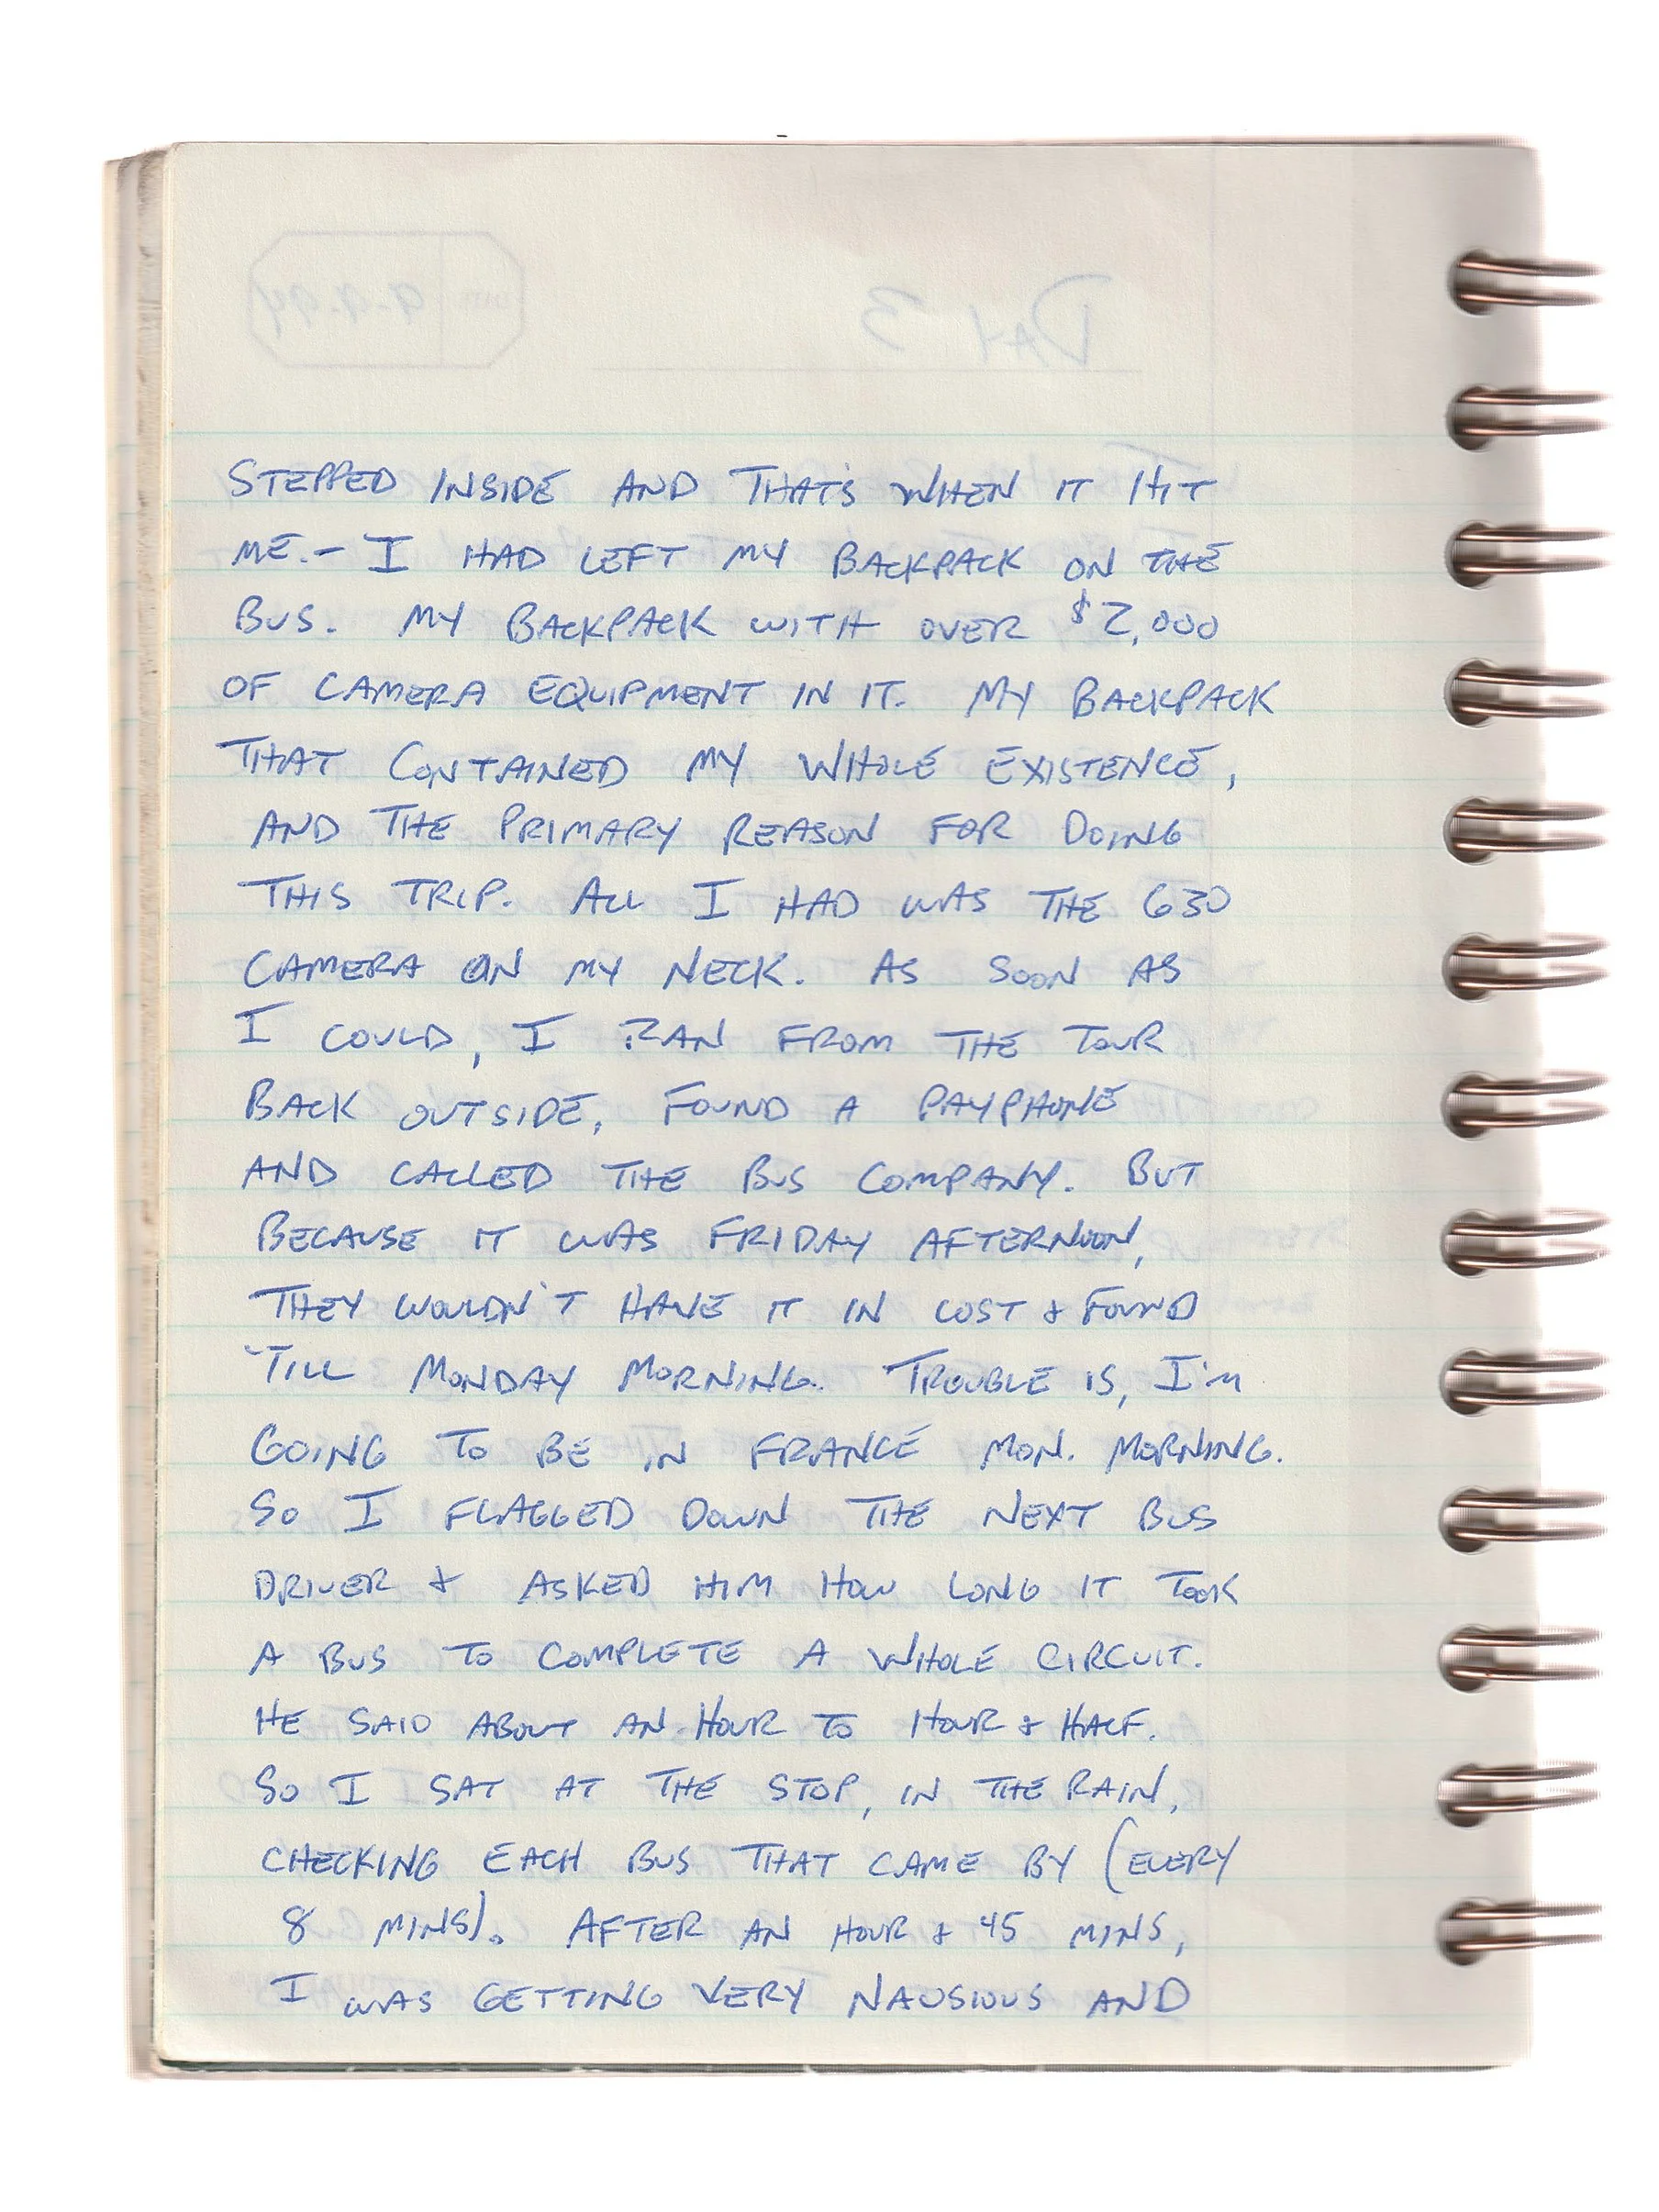 STEPPED INSIDE AND THAT'S WHEN IT HIT
ME.- I HAD LEFT MY BACKPACK ON THE
BUS. MY BACKPACK WITH OVER $2,000
OF CAMERA EQUIPMENT IN IT. MY BACKPACK
THAT CONTAINED MY WHOLE EXISTENCE,
AND THE PRIMARY REASON FOR DOING
THIS TRIP. ALL I HAD WAS THE 630
CAMERA ON MY NECK. AS SOON AS
I COULD, I RAN FROM THE TOUR
BACK OUTSIDE, FOUND A PAYPHONE
AND CALLED THE BUS COMPANY. BUT
BECAUSE IT WAS FRIDAY AFTERNOON,
THEY WOULDN'T HAVE IT IN LOST & FOUND
'TILL MONDAY MORNING. TROUBLE IS, I'M
GOING TO BE IN FRANCE MON. MORNING.
SO I FLAGGED DOWN THE NEXT BUS
DRIVER & ASKED HIM HOW LONG IT TOOK
A BUS TO COMPLETE A WHOLE CIRCUIT.
HE SAID ABOUT AN HOUR TO HOUR & HALF.
SO I SAT AT THE STOP, IN THE RAIN,
CHECKING EACH BUS THAT CAME BY (EVERY
8 MINS). AFTER AN HOUR & 45 MINS,
I WAS GETTING VERY NAUSIOUS AND